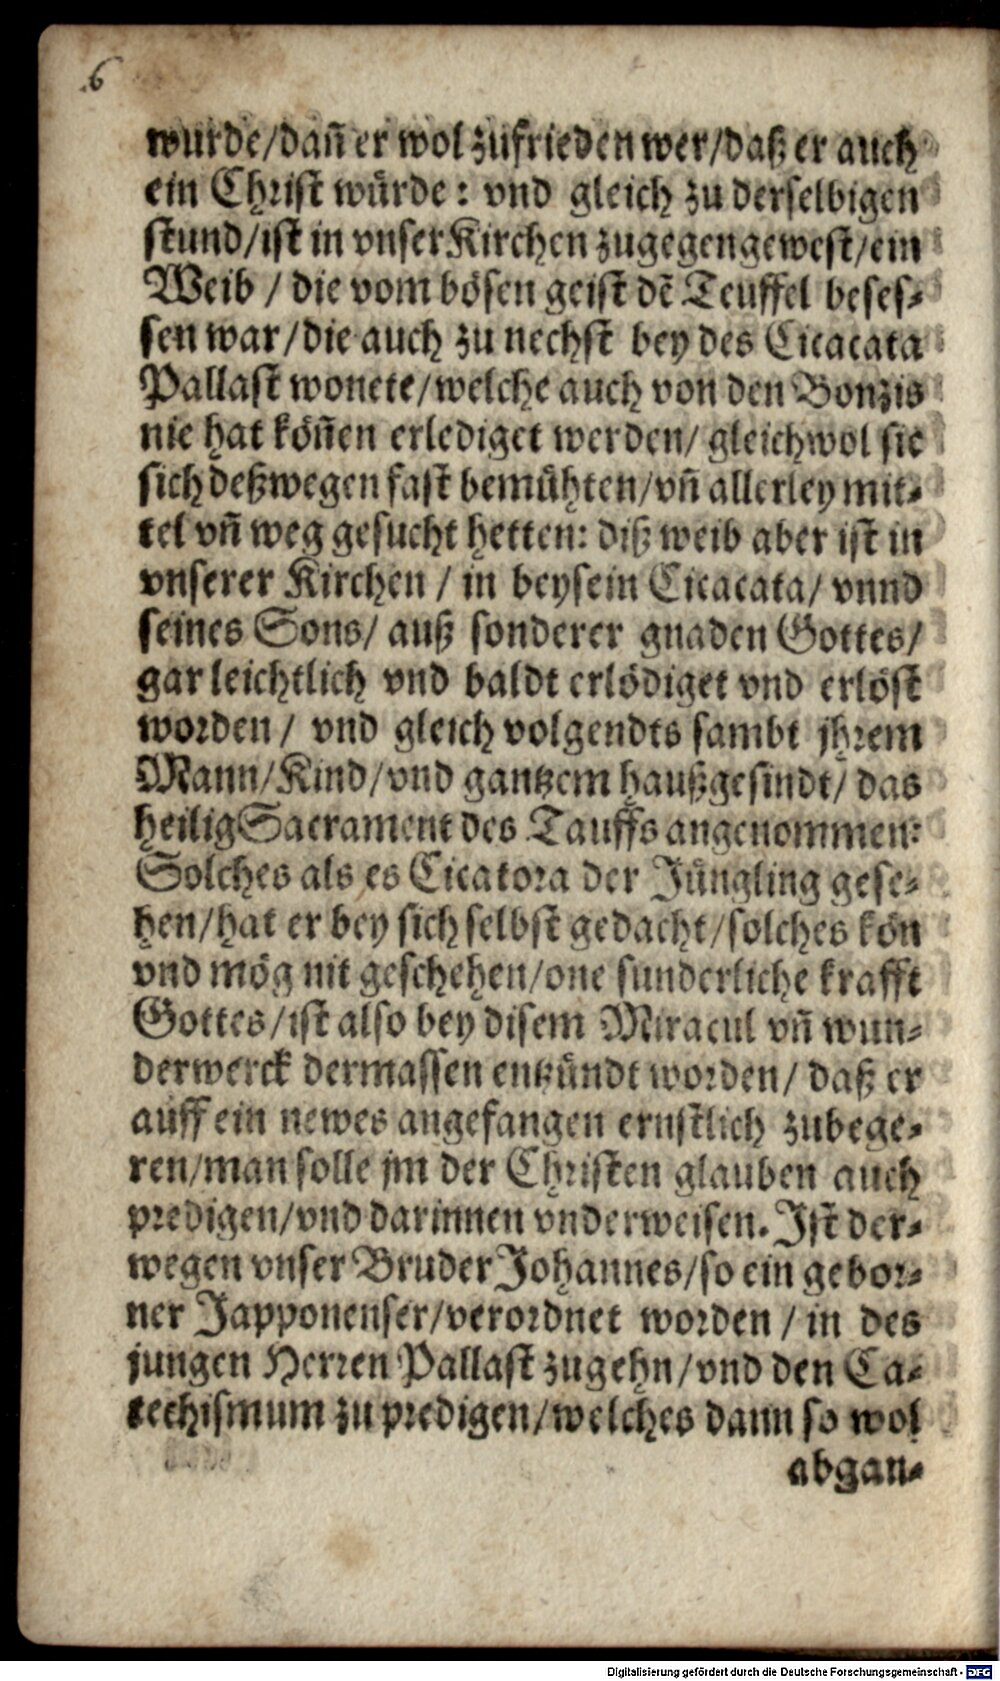 6
wurde/dañ er wol zufrieden wer/daß er auch
ein Christ würde: vnd gleich zu derselbigen
stund/ist in vnser Kirchen zugegen gewest/ein
Weib / die vom bösen geist dē Teuffel beses-
sen war/die auch zu nechst bey des Cicacata
Pallast wonete/welche auch von den Bonzis
nie hat köñen erlediget werden/ gleichwol sie
sich deßwegen fast bemühten/vñ allerley mit-
tel vñ weg gesucht hetten: diß weib aber ist in
vnserer Kirchen / in beysein Cicacata/ vnnd
seines Sons/ auß sonderer gnaden Gottes/
gar leichtlich vnd baldt erlödiget vnd erlöst
worden / vnd gleich volgendts sambt jhrem
Mann/Kind/vnd gantzem haußgesindt/ das
heilig Sacrament des Tauffs angenommen:
Solches als es Cicatora der Jüngling gese-
hen/hat er bey sich selbst gedacht/solches kön
vnd mög nit geschehen/one sunderliche krafft
Gottes/ist also bey disem Miracul vñ wun-
derwerck dermassen entzündt worden/ daß er
auff ein newes angefangen ernstlich zubege-
ren/man solle jm der Christen glauben auch
predigen/vnd darinnen vnderweisen. Ist der-
wegen vnser Bruder Johannes/so ein gebor-
ner Japponenser/verordnet worden / in des
jungen Herren Pallast zugehn/vnd den Ca-
techismum zu predigen/welches dann so wol
abgan-
Digitalisierung gefördert durch die Deutsche Forschungsgemeinschaft - DFG